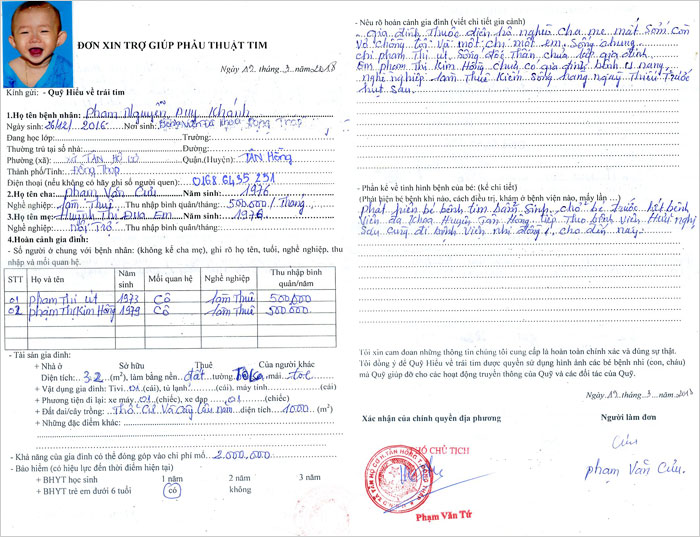 ĐƠN XIN TRỢ GIÚP PHẪU THUẬT TIM
Ngày 12 tháng 3 năm 2018
Kính gửi: - Quỹ Hiểu về trái tim
1.Họ tên bệnh nhân: Phạm Nguyễn Duy Khánh
Ngày sinh: 26/12/ 2016 Nơi sinh: Bệnh viện Đa Khoa Đồng Tháp
Đang học lớp: Trường:
Thường trú tại số nhà: Đường:
Phường (xã): xã TÂN HỘ CƠ Quận.(Huyện): TÂN Hồng
Thành phố/Tỉnh: Đồng Tháp
Điện thoại (nếu không có hãy ghi số người quen): 0168 6435 251
2.Họ tên cha: phạm Văn Cưu Năm sinh: 1976
Nghề nghiệp: làm Thuê Thu nhập bình quân/tháng: 500.000/ Tháng
3.Họ tên mẹ: Huỳnh Thị Đua Em Năm sinh: 1976
Nghề nghiệp: Nội Trợ Thu nhập bình quân/tháng:
4.Hoàn cảnh gia đình:
- Số người ở chung với bệnh nhân: (không kể cha mẹ), ghi rõ họ tên, tuổi, nghề nghiệp, thu
nhập và mối quan hệ.
STT Họ và tên Năm sinh Mối quan hệ Nghề nghiệp Thu nhập bình quân/năm
01 phạm Thị út 1973 Cô làm Thuê 500.000
02 phạm Thị Kim Hồng 1979 Cô làm Thuê 500.000
- Tài sản gia đình:
+ Nhà ở Sở hữu Thuê Của người khác
Diện tích: 32 (m²), làm bằng nền đất tường Tola mái tole
+ Vật dụng gia đình: Tivi 01 (cái), tủ lạnh (cái), máy tính (cái)
+ Phương tiện đi lại: xe máy 01 (chiếc), xe đạp 01 (chiếc)
+ Đất đai/cây trồng: Thổ Cư Và Cây lâu năm diện tích 1000 (m²)
+ Những đặc điểm khác:
- Khả năng của gia đình có thể đóng góp vào chi phí mổ: 2.000.000
- Bảo hiểm (có hiệu lực đến thời điểm hiện tại)
+ BHYT học sinh 1 năm 2 năm 3 năm
+ BHYT trẻ em dưới 6 tuổi có không
- Nêu rõ hoàn cảnh gia đình (viết chi tiết gia cảnh)
gia đình thuộc diện hộ nghèo cha mẹ mất sớm còn
vợ chồng tôi và một chị một em Sống chung
chị phạm Thị út Sống độc Thân chưa lập gia đình
Em phạm Thị Kim Hồng chưa có gia đình bệnh u nang
nghề nghiệp làm Thuê Kiếm Sống hàng ngày Thiếu Trước
hụt sau.
- Phần kể về tình hình bệnh của bé: (kể chi tiết)
(Phát hiện bệnh khi nào, cách điều trị, khám ở bệnh viện nào, mấy lần
phát hiện bé bệnh tim bẩm sinh cho bé trước hết bệnh
Viện đa khoa Huyện Tân Hồng tiếp Theo bệnh viện Hữu nghị
Sau cùng đi bệnh Viện nhi đồng 1 cho đến nay.
Tôi xin cam đoan những thông tin chúng tôi cung cấp là hoàn toàn chính xác và đúng sự thật.
Tôi đồng ý để Quỹ Hiểu về trái tim được quyền sử dụng hình ảnh các bé bệnh nhi (con, cháu)
mà Quỹ giúp đỡ cho các hoạt động truyền thông của Quỹ và các đối tác của Quỹ.
Ngày 12 tháng 3 năm 2018
Xác nhận của chính quyền địa phương Người làm đơn
PHÓ CHỦ TỊCH
Cưu
phạm Văn Cưu.
Phạm Văn Tứ